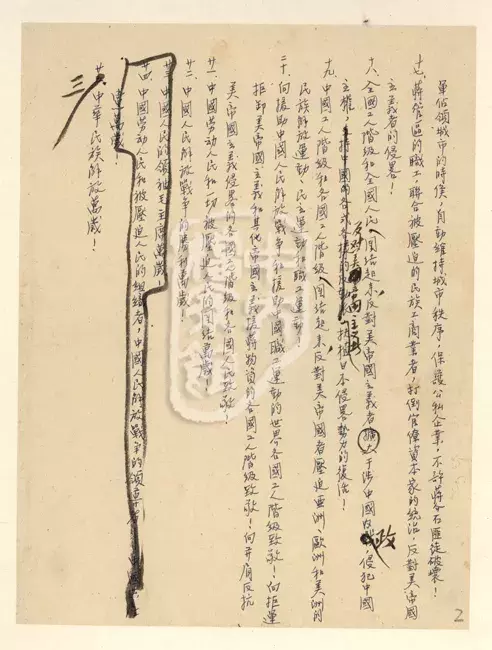 軍佔領城市的時侯，自動維持城市秩序，保護公私企業，不許蔣介石匪徒破壞！
十七、蔣管區的職工，聯合被壓迫的民族工商業者，打倒官僚資本家的統治，反對美帝國
主義者的侵畧！
十八、全國工人階級和全國人民，團結起來反對美帝國主義者擴大干涉中國內政，侵犯中國
主權，反對美帝國主義扶植日本侵畧勢力的復活！
十九、中國工人階級和各國工人階級，團結起來，反對美帝國者壓迫亞洲、歐洲和美洲的
民族解放運動、民主運動和職工運動！
二十、向援助中國人民解放戰爭和援助中國職工運動的世界各國工人階級致敬！向拒運
拒卸美帝國主義和其他帝國主義援蔣物資的各國工人階級致敬！向並肩反抗
美帝國主義侵畧的各國工人階級和各國人民致敬！
廿一、中國勞動人民和一切被壓迫人民的團結萬歲！
廿二、中國人民解放戰爭的勝利萬歲！
廿三、中國人民的領袖毛主席萬歲！
廿四、中國勞動人民和被壓迫人民的組織者，中國人民解放戰爭的領導者
萬歲！
中華民族解放萬歲！
三
2